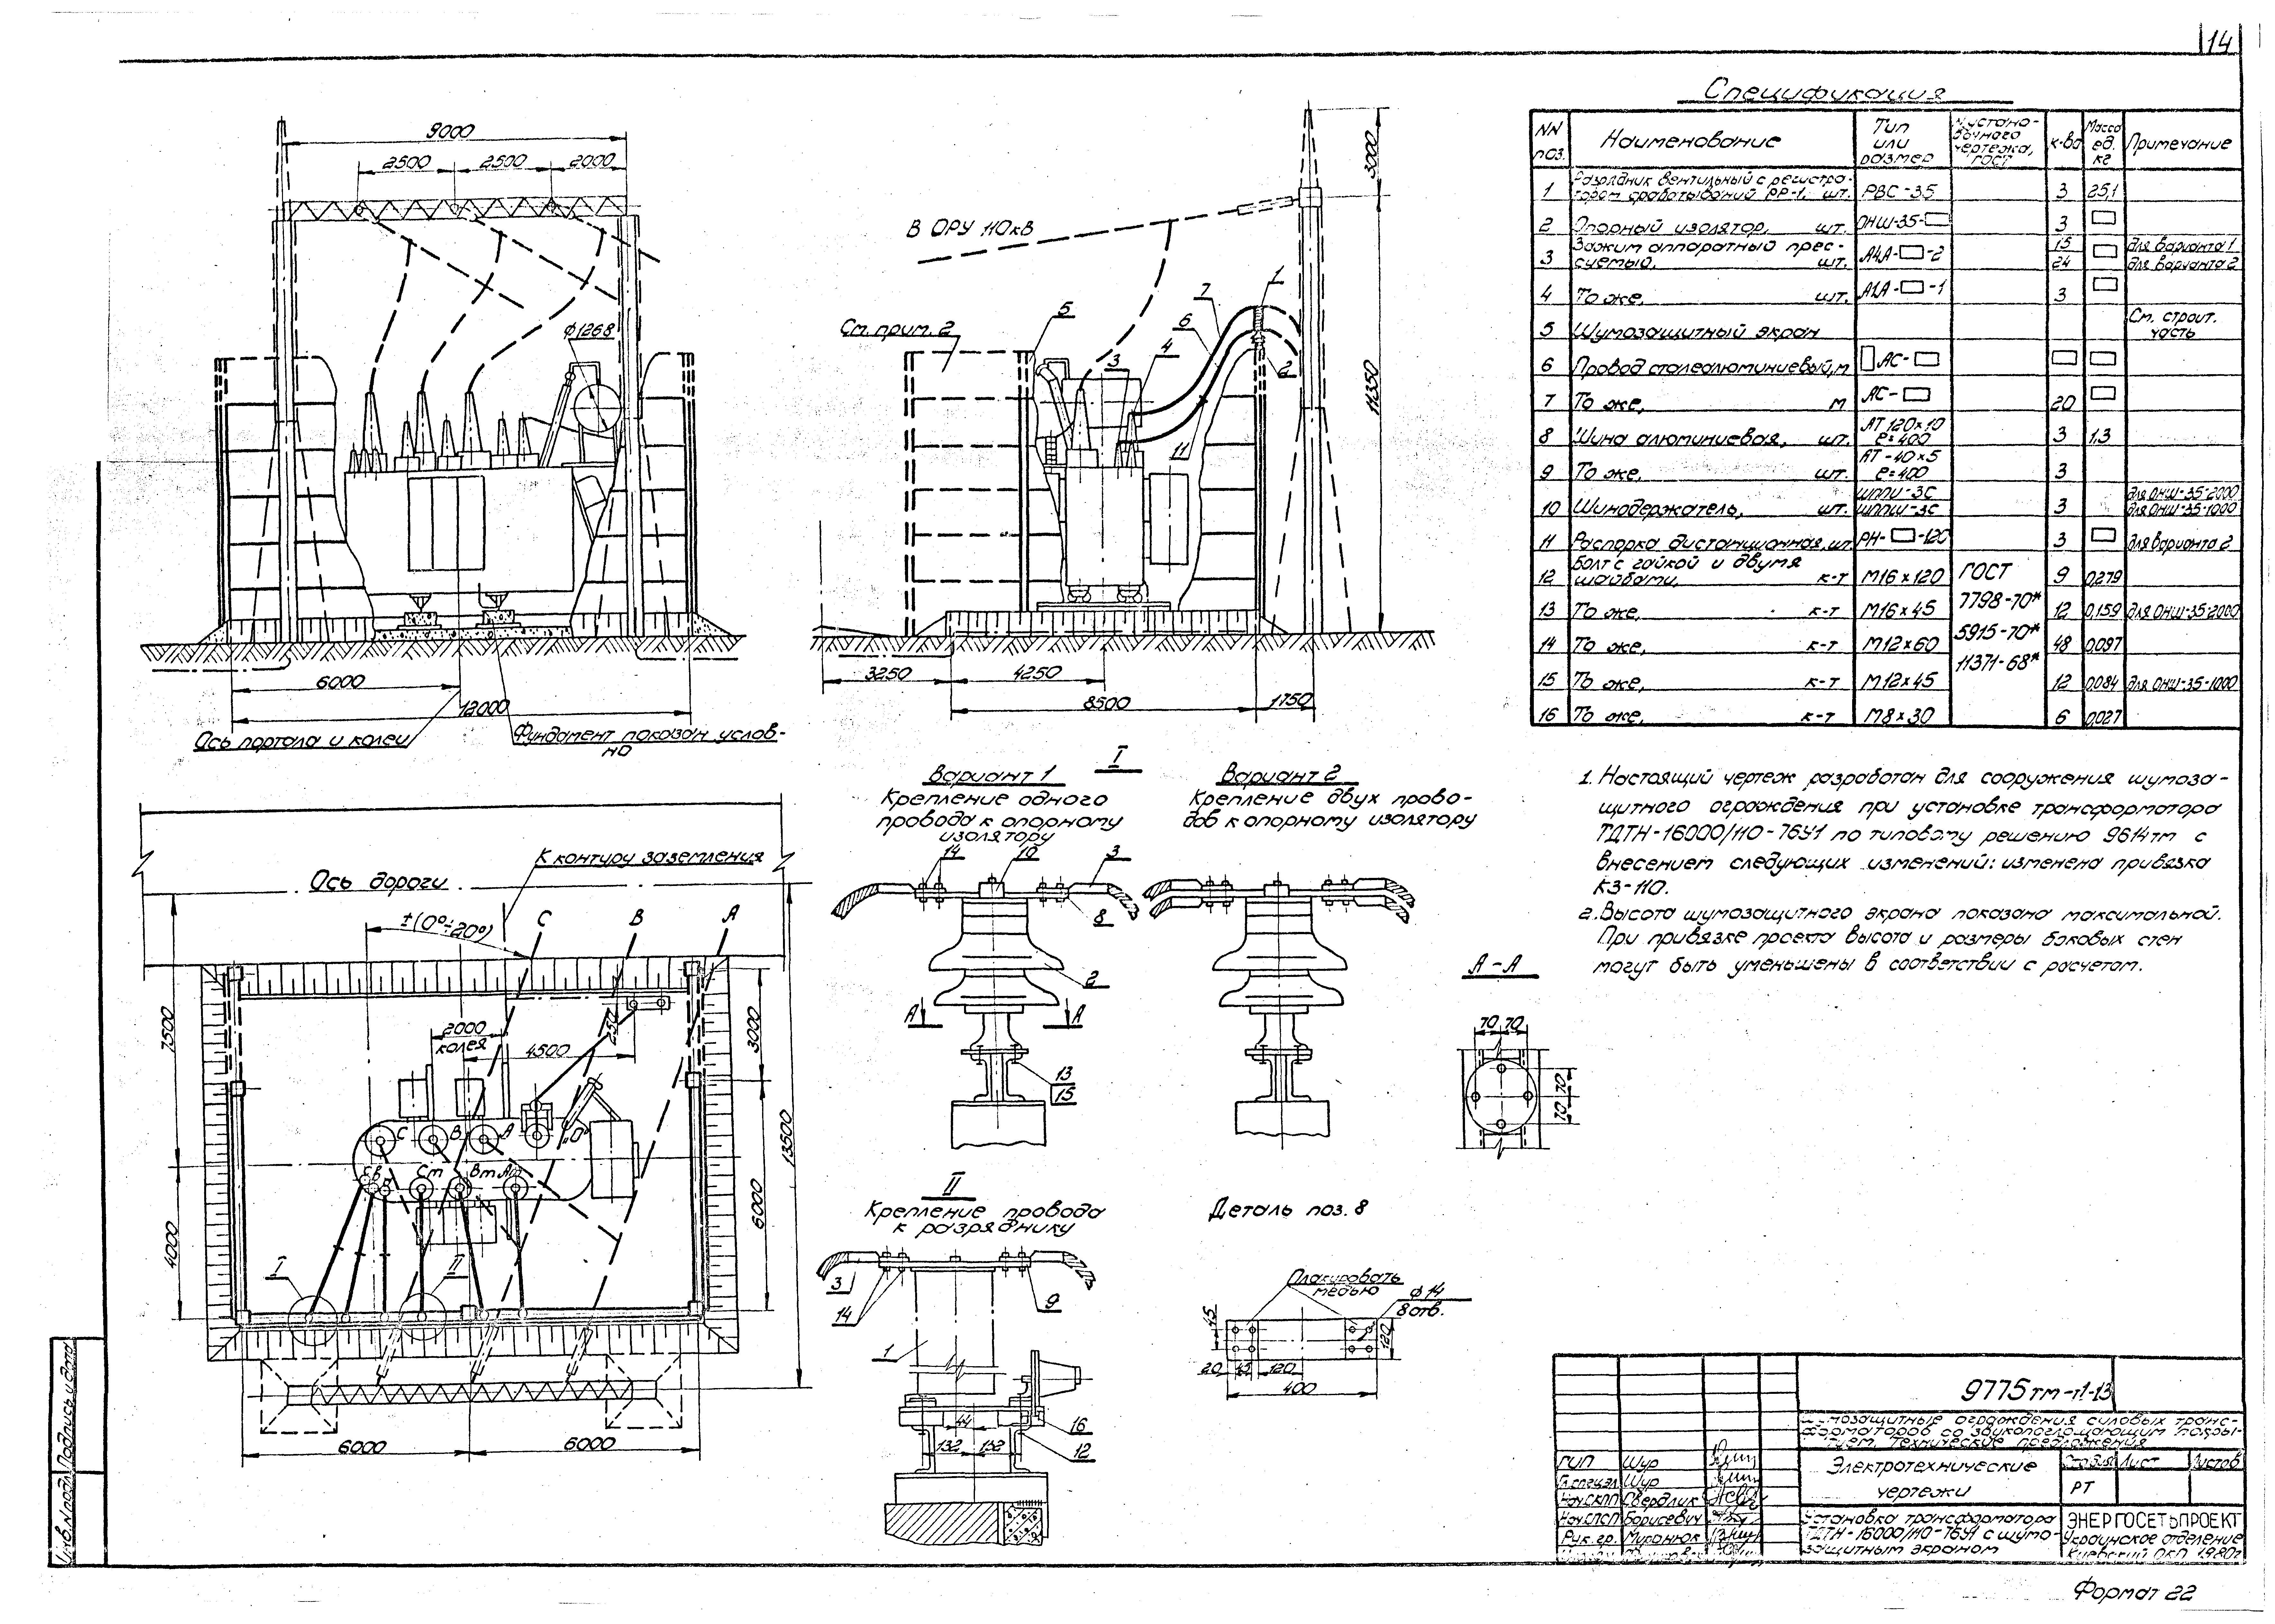 14
Спецификация
NN поз.
Наименование
Тип или размер
N установочного чертежа, ГОСТ
к-во
Масса ед. кг
Примечание
1 Разрядник вентильный с регистратором срабатываний РР-1, шт. РВС-35 3 25,1
2 Опорный изолятор, шт. ОНШ-35-□ 3 □
3 Зажим аппаратный прессуемый, шт. А4А-□-2 15 □ для варианта 1
24 для варианта 2
4 То же, шт. А1А-□-1 3 □
5 Шумозащитный экран См. строит. часть
6 Провод сталеалюминиевый, м □АС-□ □ □
7 То же, м АС-□ 20 □
8 Шина алюминиевая, шт. АТ 120×10 ℓ=400 3 1,3
9 То же, шт. АТ-40×5 ℓ=400 3
10 Шинодержатель, шт. 3 для ОНШ-35-2000
для ОНШ-35-1000
11 Распорка дистанционная, шт РН-□-120 3 □ для варианта 2
12 Болт с гайкой и двумя шайбами, к-т М16×120 ГОСТ 9 0,279
13 То же, к-т М16×45 7798-70* 12 0,159 для ОНШ-35-2000
14 То же, к-т М12×60 5915-70* 48 0,097
15 То же, к-т М12×45 11371-68* 12 0,084 для ОНШ-35-1000
16 То же, к-т М8×30 6 0,027
9000
2500 2500 2000
ϕ1268
6000
12000
Ось портала и колеи
Фундамент показан услов-
но
В ОРУ 110кВ
См. прим. 2
5
7
6
4
3
1
2
11
3000
11350
3250
4250
8500
1750
I
Вариант 1
Крепление одного
провода к опорному
изолятору
Вариант 2
Крепление двух прово-
дов к опорному изолятору
14
10
3
8
2
А
А
13
15
1. Настоящий чертеж разработан для сооружения шумоза-
щитного ограждения при установке трансформатора
ТДТН-16000/110-76У1 по типовому решению 9614тм с
внесением следующих изменений: изменена привязка
КЗ-110.
2. Высота шумозащитного экрана показана максимальной.
При привязке проекта высота и размеры боковых стен
могут быть уменьшены в соответствии с расчетом.
А-А
70 70
70 70
К контуру заземления
Ось дороги
±(0°÷20°)
С
В
А
7500
4000
2000
колея
4500
250
3000
6000
13500
С В А „0"
Ст Вт Ат
I
II
6000
6000
II
Крепление провода
к разряднику
3
14
9
1
16
12
44
132 132
Деталь поз. 8
Плакировать
медью
ϕ14
8 отв.
45
120
20 45 120
400
9775тм-т1-13
Шумозащитные ограждения силовых транс-
форматоров со звукопоглощающим покры-
тием. Технические предложения
Электротехнические
чертежи
Стадия Лист Листов
РТ
ГИП Шур
Гл.спец.эл Шур
Нач.СКПП Свердлик
Нач.СПСП Борисевич
Рук. гр. Миранюк
Установка трансформатора
ТДТН-16000/110-76У1 с шумо-
защитным экраном
ЭНЕРГОСЕТЬПРОЕКТ
Украинское отделение
Киевский ОКП 1980г
Инв. N подл. Подпись и дата
Формат 22